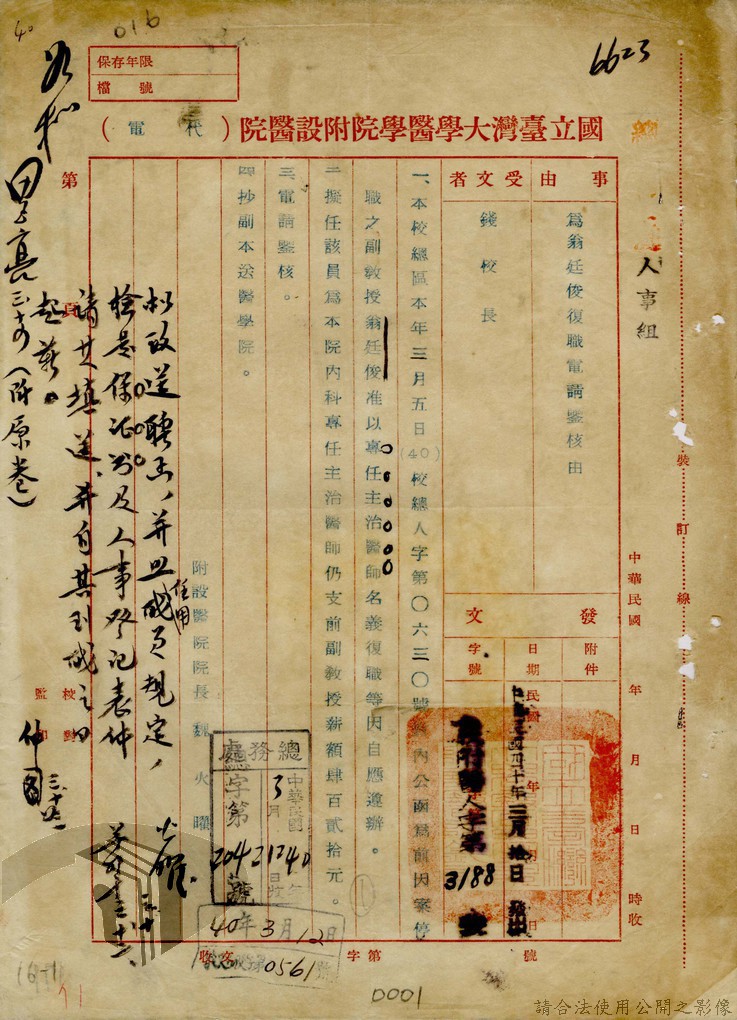 40
016
6623
保存年限
檔號
國立臺灣大學醫學院附設醫院（代電）
人事組
事由
為翁廷俊復職電請鑒核由
受文者
錢校長
發文
附件
日期
字號
中華民國四十年三月拾日發出
附醫人字第
3188
號
一、本校總區本年三月五日(40)校總人字第〇六三〇號
內公函為前因案停
職之副教授翁廷俊准以專任主治醫師名義復職等因自應遵辦。
二擬任該員為本院內科專任主治醫師仍支前副教授薪額肆百貳拾元。
三、電請鑒核。
四抄副本送醫學院。
附設醫院院長魏火曜
擬改送聘書，并照職員任用規定，
檢送保證書及人事登記表
請其填送，并自其到職之日
起薪。
如擬
（附原卷）
第頁
校對
監印
總務處
中華民國40年3月12日收
總字第204號
40年3月12日
0561
收文字第號
中華民國年月日時收
裝訂線
0001
請合法使用公開之影像